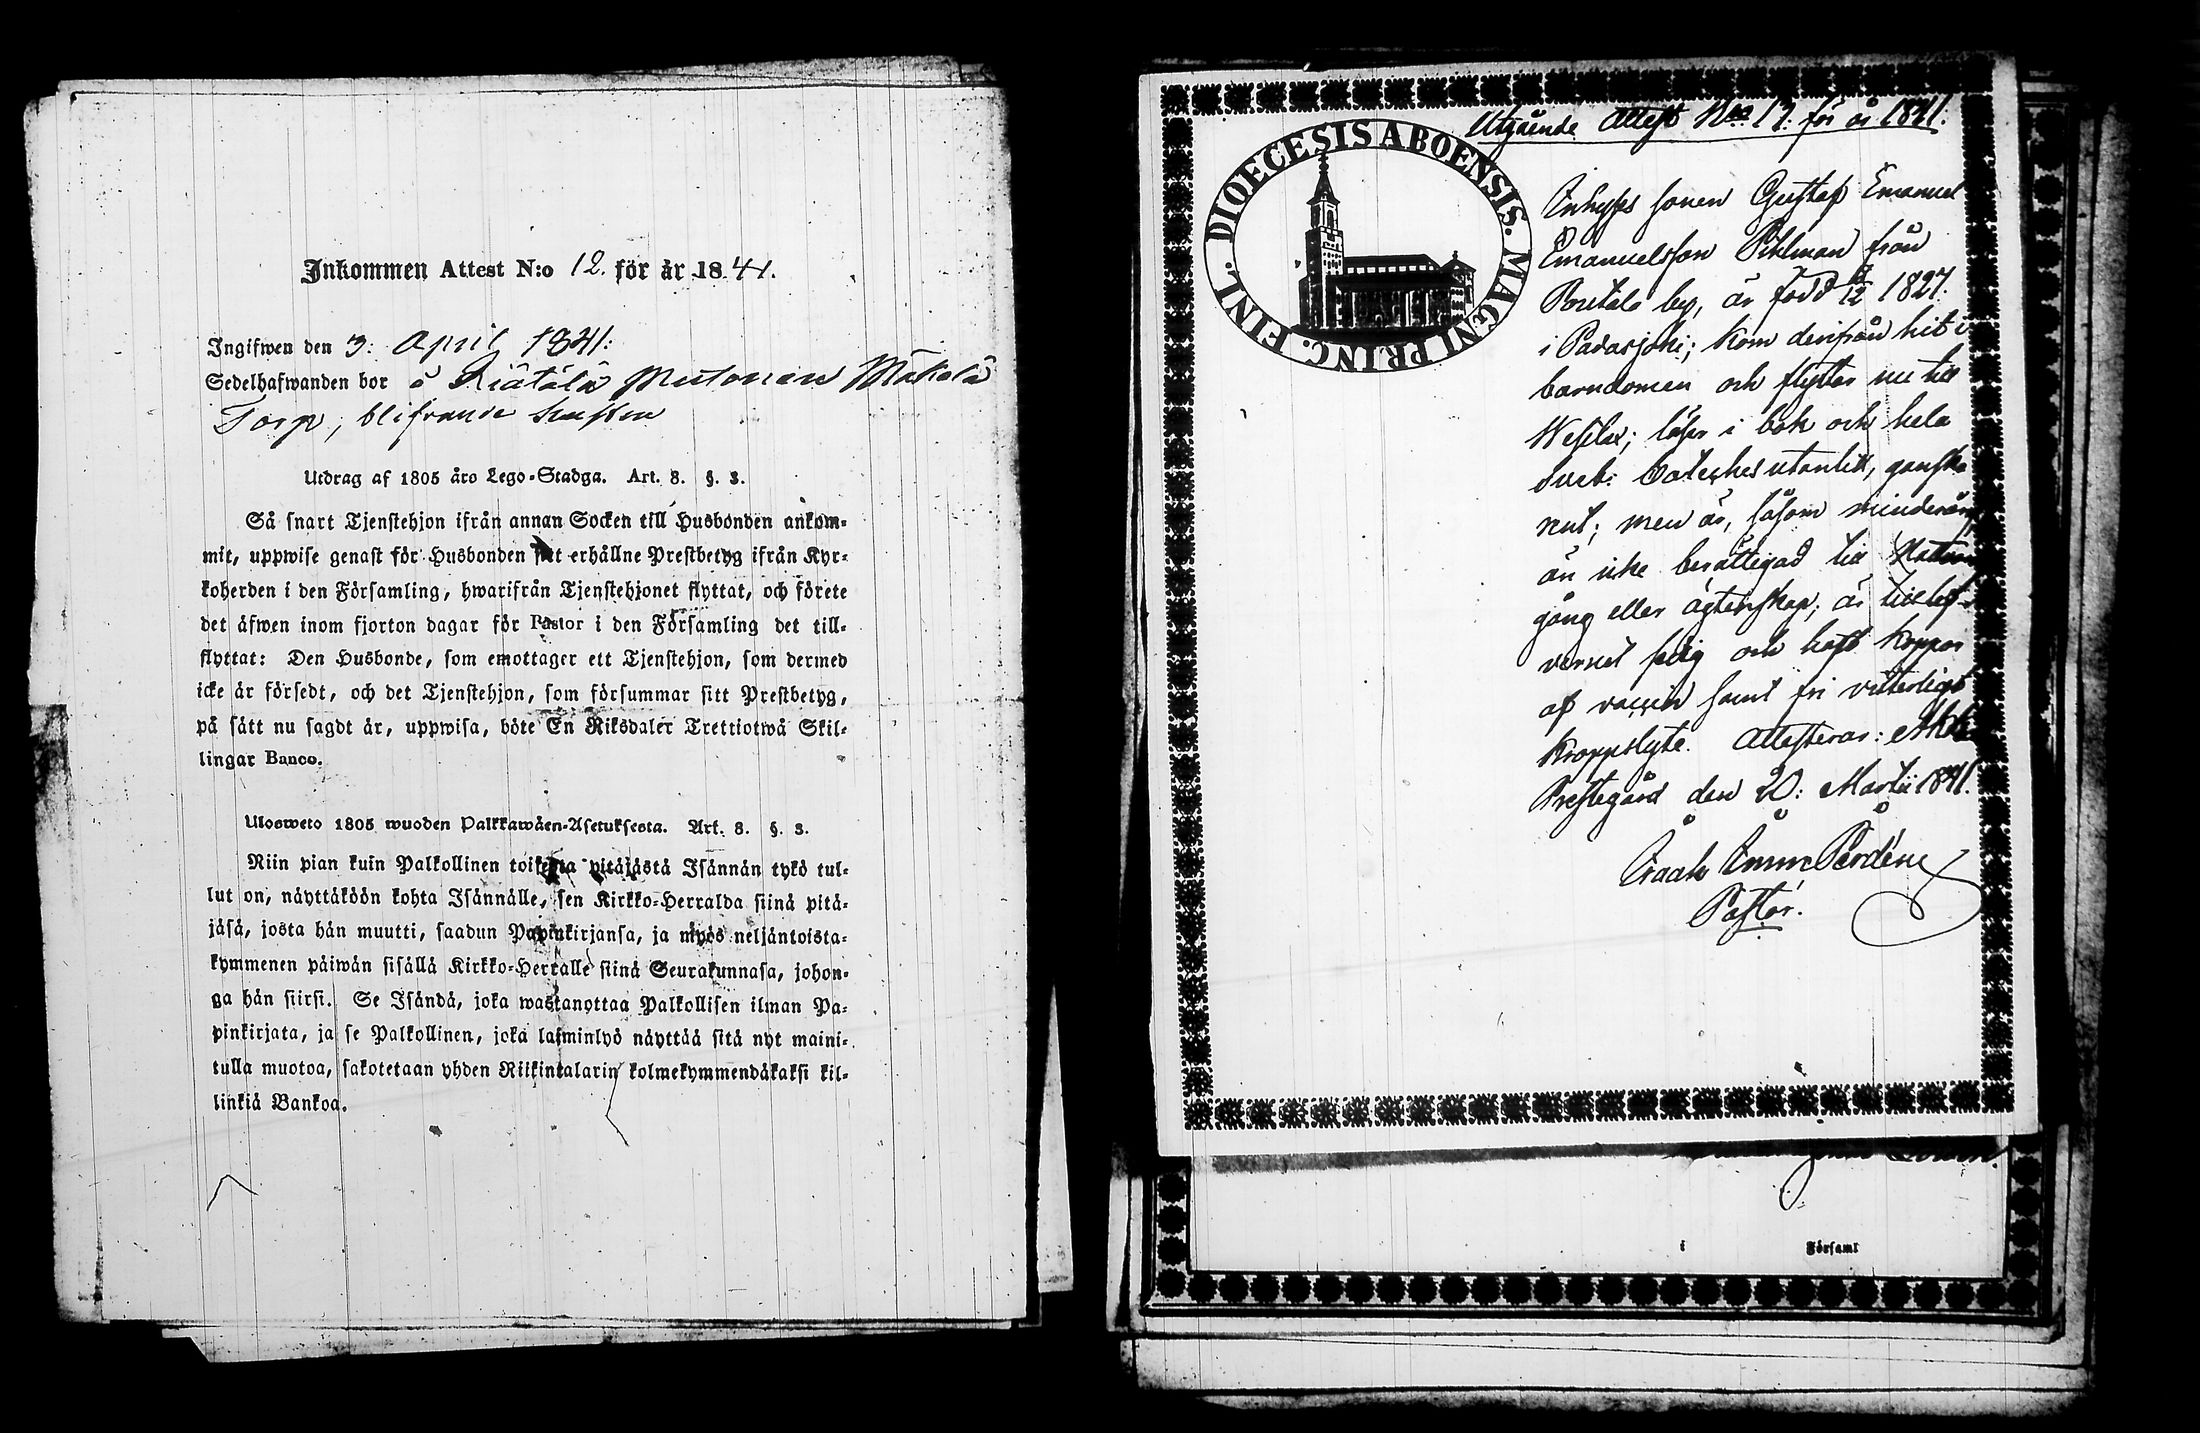 Inkommen Attest N:o 12. för år 1841.
Ingifwen den 3: April 1841:
Sedelhafwanden bor å Riätälä Mutonen Mäkelä
Torp, blifvande
Utdrag af 1805 års Lego-Stadga. Art. 8. §. 3.
Så snart Tjenstehjon ifrån annan Socken till Husbonden ankom-
mit, uppwise genast för Husbonden sitt erhållne Prestbetyg ifrån Kyr-
koherden i den Församling, hwarifrån Tjenstehjonet flyttat, och förete
det äfwen inom fjorton dagar för Pastor i den Församling det till-
flyttat: Den Husbonde, som emottager ett Tjenstehjon, som dermed
icke är försedt, och det Tjenstehjon, som försummar sitt Prestbetyg,
på sätt nu sagdt är, uppwisa, böte En Riksdaler Trettiotwå Skil-
lingar Banco.
Ulosweto 1805 wuoden Palkkawäen-Asetuksesta. Art. 8. §. 3.
Niin pian kuin Palkollinen toisesta pitäjästä Isännän tykö tul-
lut on, näyttäköön kohta Isännälle, sen Kirkko-Herralda siinä pitä-
jäsä, josta hän muutti, saadun Papinkirjansa, ja myös neljäntoista-
kymmenen päiwän sisällä Kirkko-Herralle siinä Seurakunnasa, johon-
ga hän siirsi. Se Isändä, joka wastanottaa Palkollisen ilman Pa-
pinkirjata, ja se Palkollinen, joka laiminlyö näyttää sitä nyt maini-
tulla muotoa, sakotetaan yhden Riikintalarin kolmekymmendäkaksi kil-
linkiä Bankoa.
Utgående Attest No 17: för år 1841.
DIOECESIS ABOENSIS. MAGNI PRINC. FINL.
Inhyses sonen Gustaf Emanuel
Emanuelsson Pihlman från
by, är född 1827.
i Padasjoki; kom derifrån hit i
barndomen och flyttar nu till
Wesilax; läser i bok och hela
Sveb: Cateches utantill, ganska
nut; men är, såsom minderårig
än icke berättigad till Nattvard
gång eller ägtenskap; är till lef-
vernet fredig och haft koppor
af vaccin samt fri vitterligt
kroppslyte. Attesteras:
Prestegård den 20: Martii 1841.
Isaak
Pastor.
i Församl